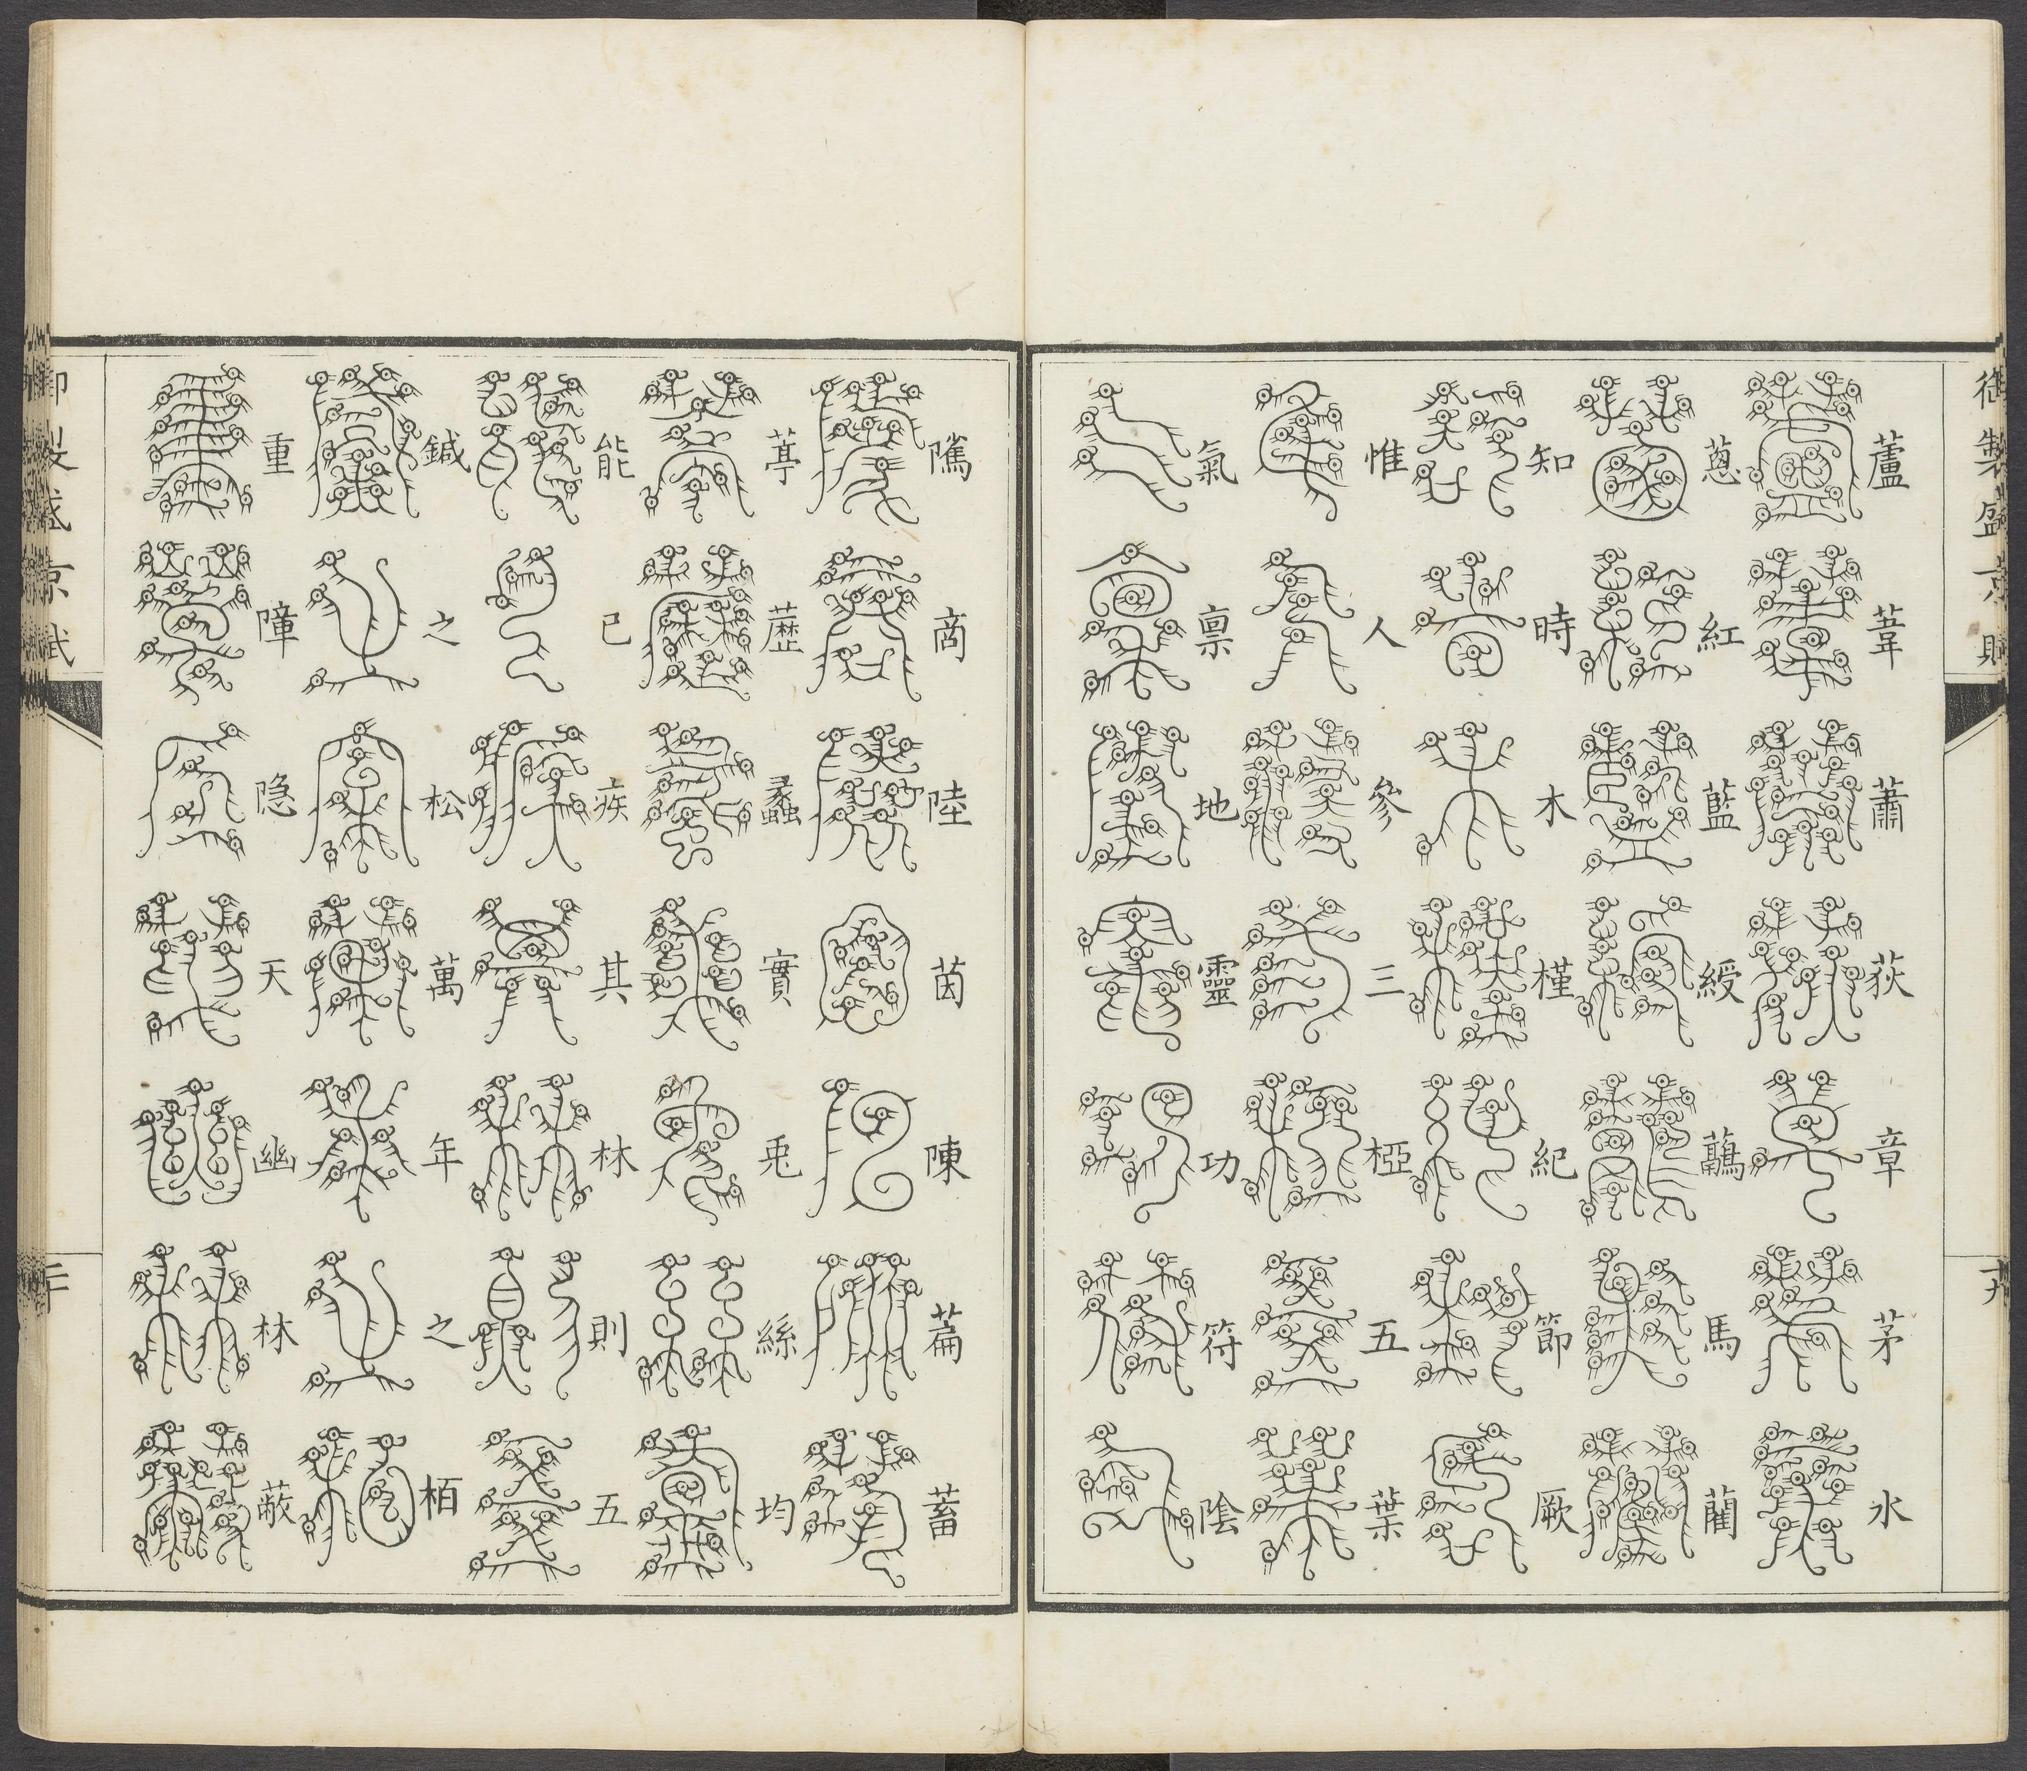 御製盛京賦
十九
蘆葦蕭荻章茅水
蔥紅藍綬虉馬藺
知時木槿紀節厥
惟人參三椏五葉
氣稟地靈功符陰
隲商陸茵陳萹蓄
葶藶蠡實兎絲均
能已疾其林則五
鍼之松萬年之栢
重障隐天幽林蔽
御製盛京賦
二十